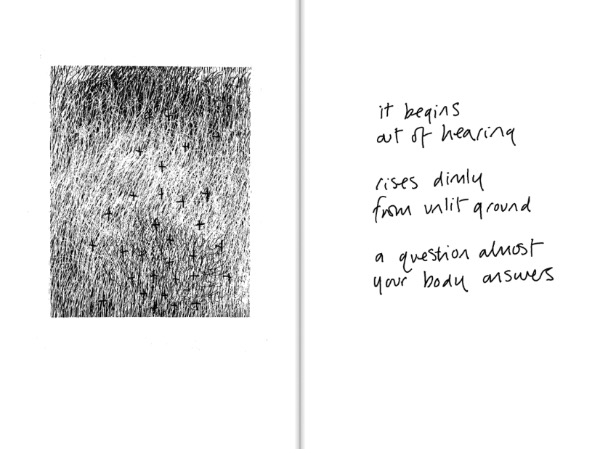 it begins
out of hearing
rises dimly
from unlit ground
a question almost
your body answers